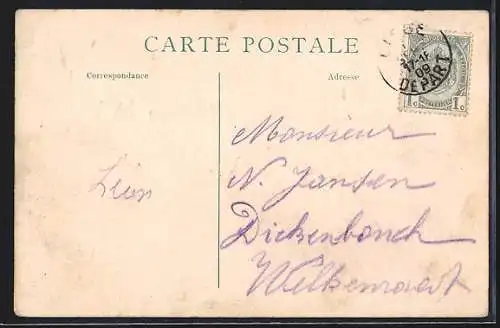 CARTE POSTALE
Correspondance
Adresse
DEPART
09
1c 1c
Monsieur
N. Jansen
Léon